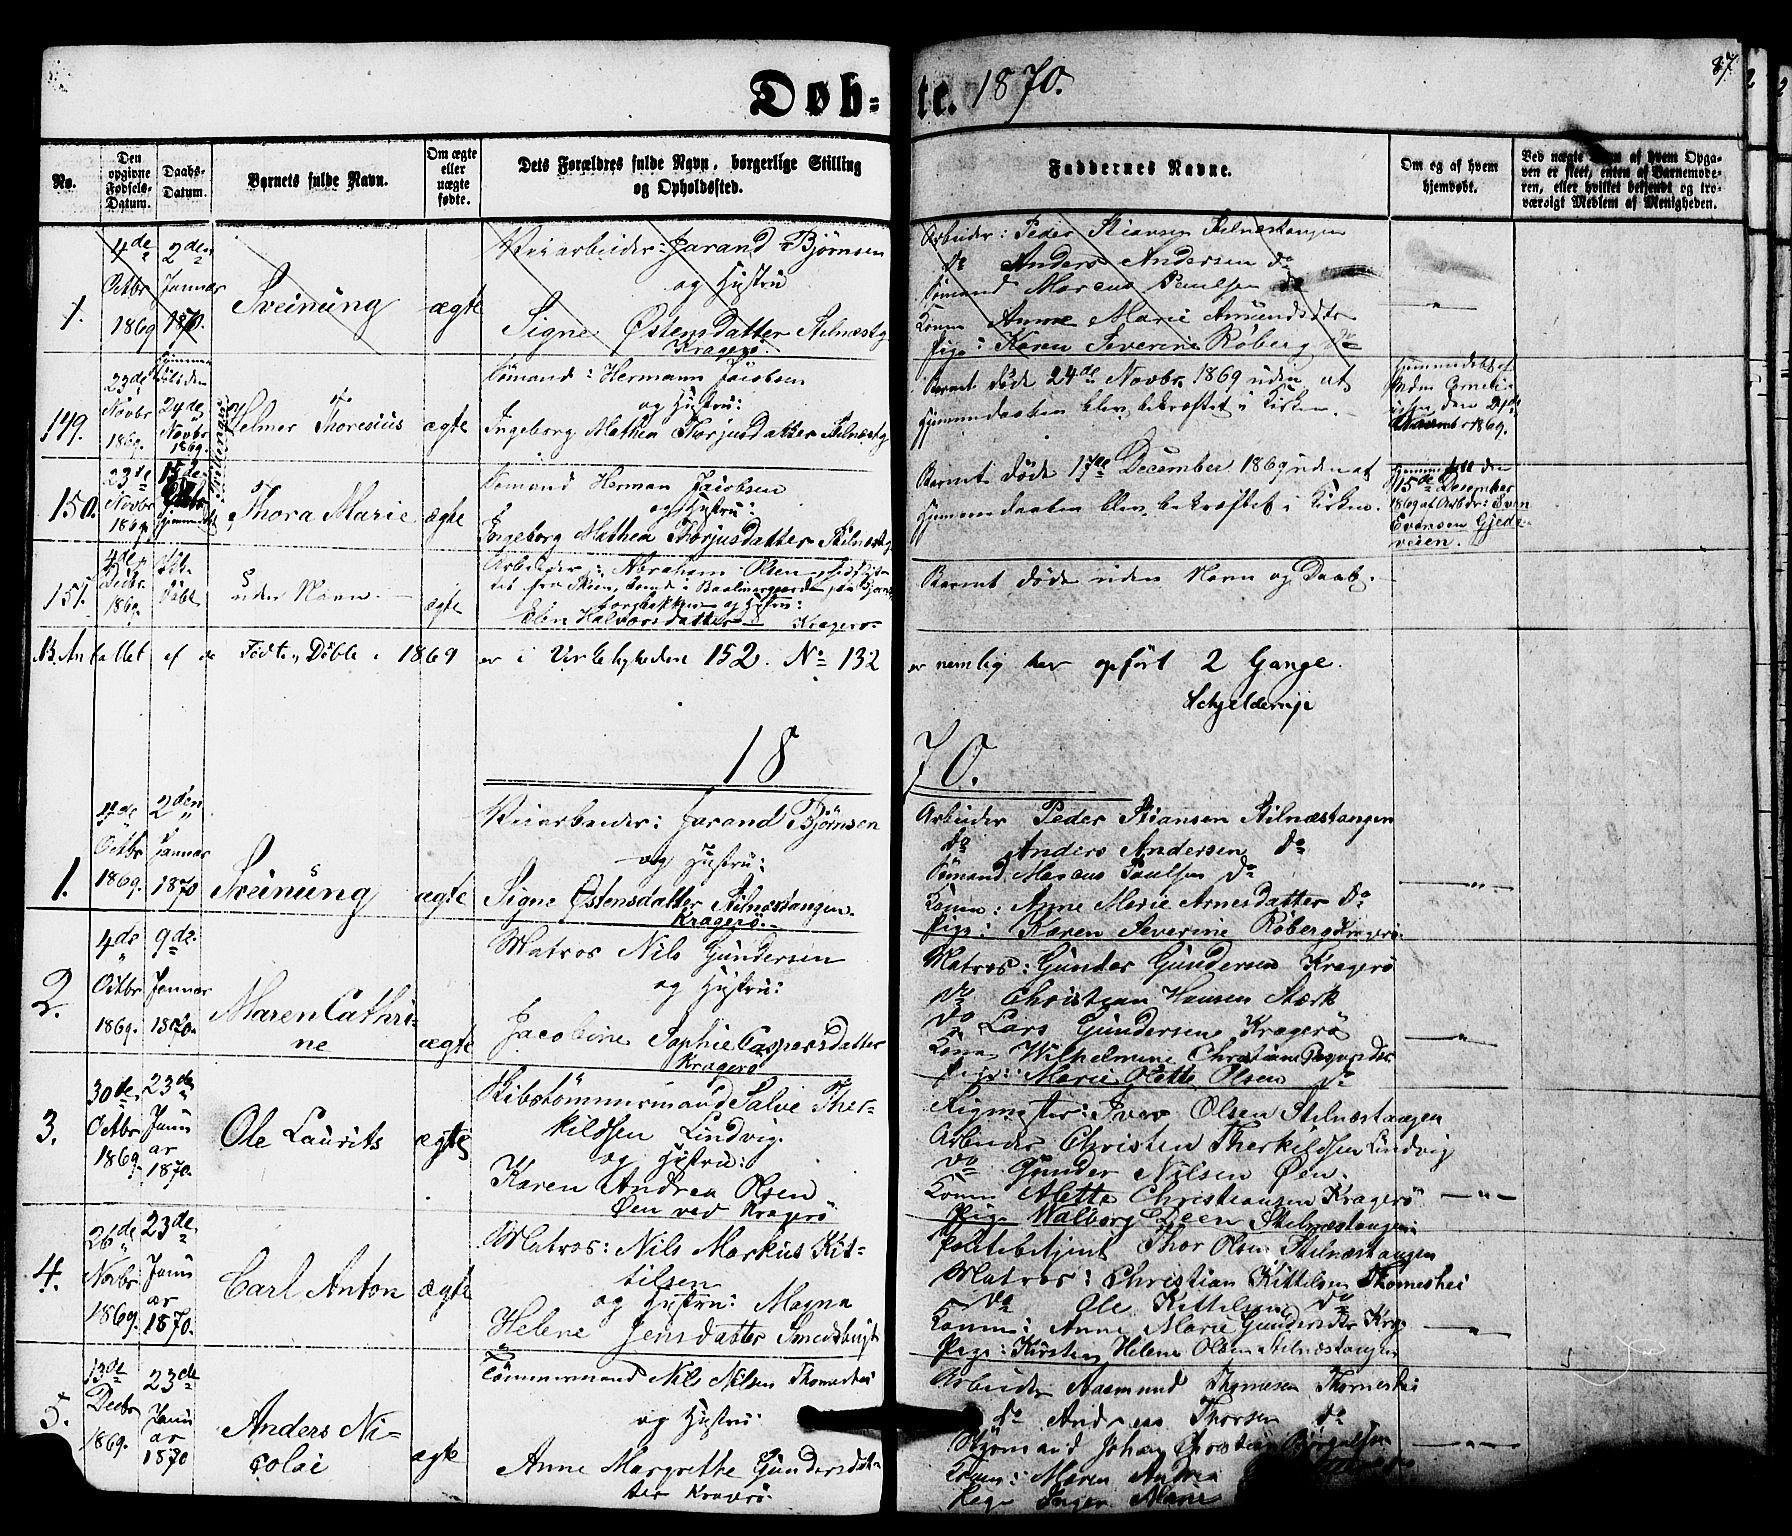 Døb-
te. 1870.
87.
No.
Den opgivne Fødsels-Datum.
Daabs-Datum.
Barnets fulde Navn.
Om ægte eller uægte fødte.
Dets Forældres fulde Navn, borgerlige Stilling
og Opholdssted.
Faddernes Navne.
Om og af hvem
hjemdøbt.
Ved uægte Børn af hvem Opga-
ven er skeet, enten af Barnemode-
ren, eller hvilket bekjendt og tro-
værdigt Medlem af Menigheden.
1.
4de Octbr 1869
2den Januar 1870.
Sveinung
ægte
Veiarbeider: Jarand Bjørnsen
og Hustru
Signe Østensdatter Stilnæstg
Kragerö.
Arbeider: Peder Kiansen Stilnæstangen
do Anders Andersen do
Sömand Marcus Paulsen do
Konen Anne Marie Amundsdtr
Pige: Karen Severine Roberg do
149.
23de Novbr 1869.
24de Novbr 1869.
Helmer Thoresius
ægte
Sömand: Hermann Jacobsen
og Hustru:
Ingeborg Mathea Torjusdatter Stilnæstg
Barnet døde 24de Novbr. 1869 uden at
Hjemmedaaben blev bekræftet i Kirken.
Hjemmedøbt af
den 24de
Novembr 1869.
Tvillinger
150.
23de Novbr 1869.
15de Hjemmedøbt
Thora Marie
ægte
Sömand Herman Jacobsen
og Hustru:
Ingeborg Mathea Torjusdatter Stilnæstg
Barnet døde 17de December 1869 uden at
Hjemmedaaben blev bekræftet i Kirken.
Hjemmedøbt den
15de December
1869 af Arbdr: Sven
Svensen Gjeds-
veien.
151.
4de Decbr. 1869
uden Navn.
ægte
Arbeider: Abraham Olsen
og Hustru:
Elen Halvorsdatter Kragerö
Barnet døde uden Navn og Daab.
NB. Antallet af de Födte, Döbte i 1869 er i Virkeligheden 152. No 132
er nemlig her opført 2 Gange.
Schjelderup
1870.
1.
4de Octbr 1869.
2den Januar 1870
Sveinung
ægte
Veiarbeider: Jarand Bjørnsen
og Hustru:
Signe Østensdatter Stilnæstangen.
Kragerö.
Arbeider Peder Kiansen Stilnæstangen
do Anders Andersen do
Sömand Marcus Paulsen do
Konen: Anne Marie Arnesdatter do
Pige: Karen Severine Roberg Kragerö
2.
4de Octbr 1869.
9de Januar 1870.
Maren Cathri-
ne
ægte
Matros Nils Gundersen
og Hustru:
Jacobine Sophie Caspersdatter
Kragerö
Matros: Gunder Gundersen Kragerö
do Christian Hansen Stærk
do Lars Gundersen Kragerö
Kone Wilhelmine Christiane
Pige: Marie Olette Olsen do
3.
30de Octbr 1869.
23de Januar 1870.
Ole Laurits
ægte
Skibstömmermand Salve Ther-
kildsen Lindvig
og Hustru:
Karen Andrea Olsen
Øen ved Kragerö
Rigmester: Iver Olsen Stilnæstangen
Arbeider Christen Therkeldsen Lindvig
do Gunder Nilsen Øen.
Konen Alette Christiansen Kragerö
Pige Walborg Stilnæstangen
4.
26de Novbr 1869.
23de Januar 1870.
Carl Anton
ægte
Matros: Nils Markus Kit-
tilsen
og Hustru: Magna
Helene Jensdatter Smedsbugt
Politibetjent Thor Olsen Stilnæstangen
Matros: Christian Kittelsen Thomeshei
do Ole Kittelsen do
Konen: Anne Marie Gundersdtr Krag.
Pige: Kirsten Helene Olsen Stilnæstangen
5.
13de Decbr 1869.
23de Januar 1870
Anders Ni-
colai
ægte
Tömmermand Nils Nilsen Thomeshei
og Hustru:
Anne Margrethe Gundersdat-
ter Kragerö
Arbeider Aasmund Thomesen Thomeshei
do Andreas Thorsen do
Styrmand Johan
Konen: Maren Andrea
Pige Inger Marie